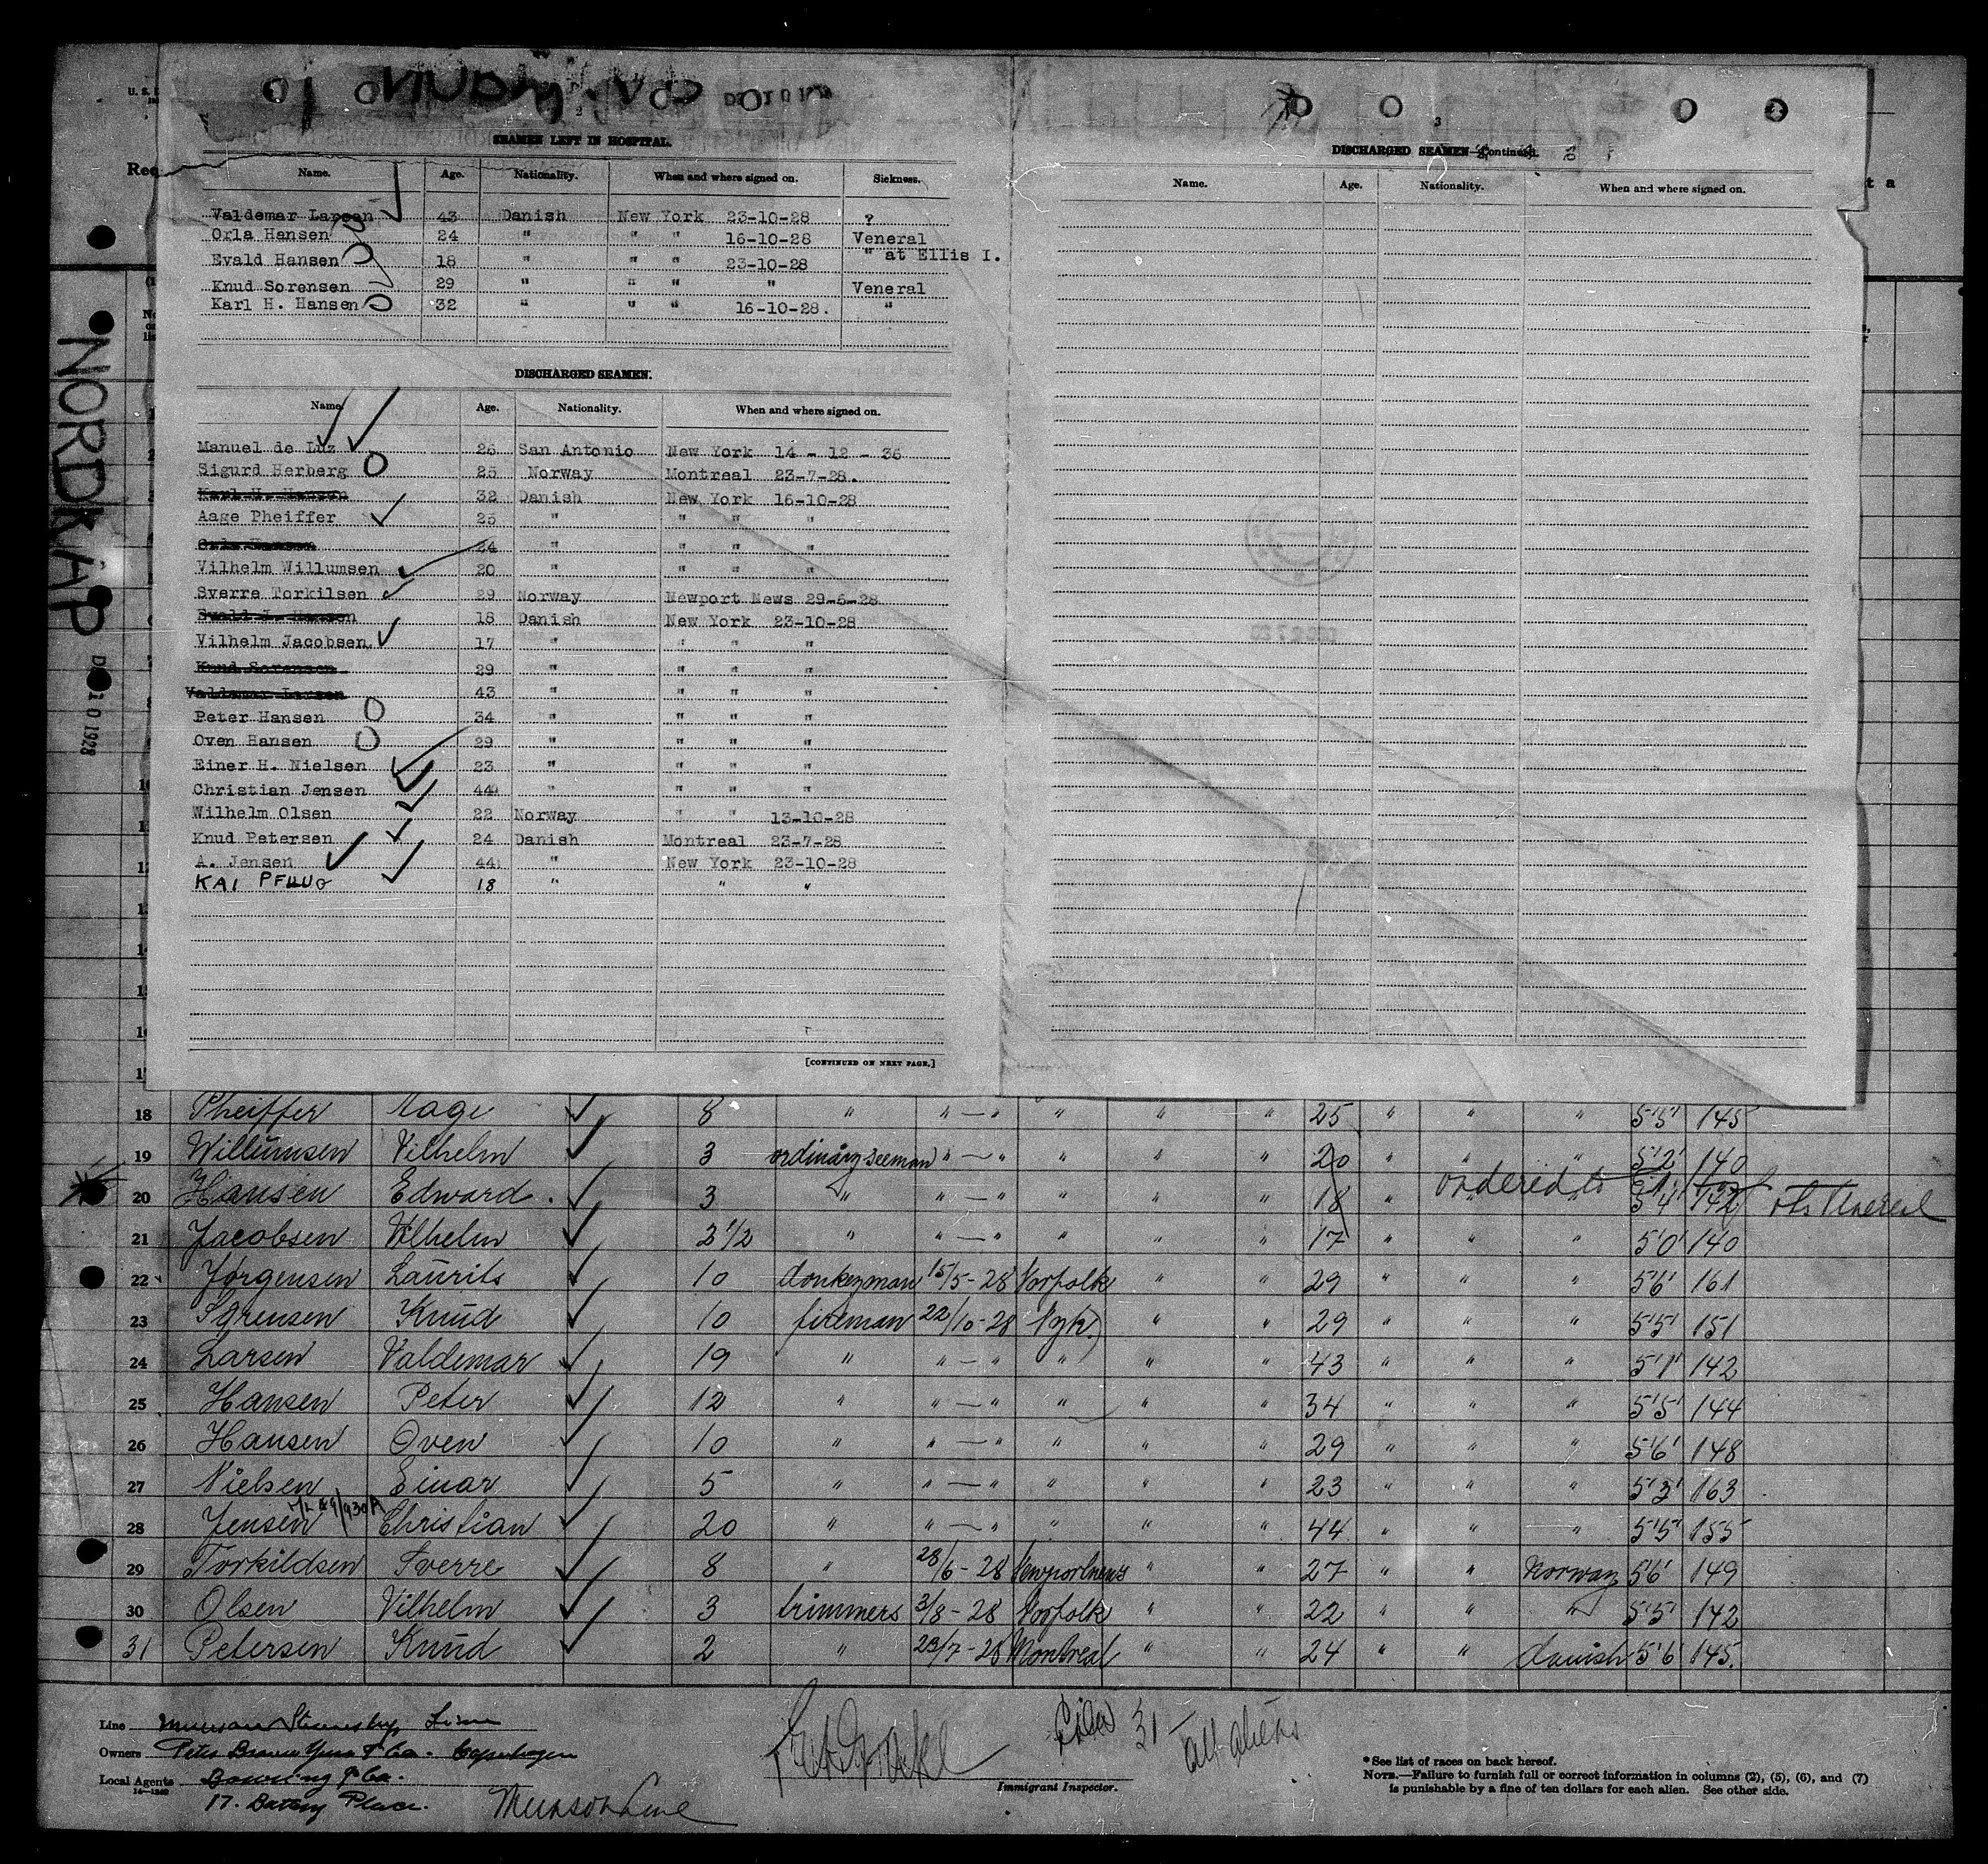 DEC 10 1928
2
SEAMEN LEFT IN HOSPITAL.
Name. Age. Nationality. When and where signed on. Sickness.
Valdemar Larsen 43 Danish New York 23-10-28 ?
Orla Hansen 24 " " " 16-10-28 Veneral
Evald Hansen 18 " " " 23-10-28 " at Ellis I.
Knud Sorensen 29 " " " " Veneral
Karl H. Hansen 32 " " " 16-10-28. "
DISCHARGED SEAMEN.
Name. Age. Nationality. When and where signed on.
Manuel de Luz 26 San Antonio New York 14 - 12 - 36
Sigurd Herberg 25 Norway Montreal 23-7-28.
Karl H. Hansen 32 Danish New York 16-10-28
Aage Pheiffer 25 " " " "
Orla Hansen 24 " " " "
Vilhelm Willumsen 20 " " " "
Sverre Torkilsen 29 Norway Newport News 29-6-28
Evald J. Hansen 18 Danish New York 23-10-28
Vilhelm Jacobsen 17 " " " "
Knud Sorensen 29 " " " "
Valdemar Larsen 43 " " " "
Peter Hansen 34 " " " "
Oven Hansen 29 " " " "
Einer H. Nielsen 23 " " " "
Christian Jensen 44 " " " "
Wilhelm Olsen 22 Norway " " 13-10-28
Knud Petersen 24 Danish Montreal 23-7-28
A. Jensen 44 " New York 23-10-28
KAI PFLUG 18 " " "
[CONTINUED ON NEXT PAGE.]
3
DISCHARGED SEAMEN—Continued.
Name. Age. Nationality. When and where signed on.
NORDKAP
DEC 10 1928
18 Pheiffer Aage 8 " " — " " " " 25 " " " 5'5" 145
19 Willumsen Vilhelm 3 ordinary seeman " — " " " " 20 " " " 5'2" 140
20 Hansen Edward. 3 " " — " " " " 18 " ordered to " 5'4" 142
21 Jacobsen Vilhelm 2 1/2 " " — " " " " 17 " " " 5'0" 140
22 Jørgensen Laurits 10 donkeyman 15/5-28 Norfolk " " 29 " " " 5'6" 161
23 Sørensen Knud 10 fireman 22/10-28 N.yk. " " 29 " " " 5'5" 151
24 Larsen Valdemar 19 " " — " " " " 43 " " " 5'1" 142
25 Hansen Peter 12 " " — " " " " 34 " " " 5'5" 144
26 Hansen Oven 10 " " — " " " " 29 " " " 5'6" 148
27 Nielsen Einar 5 " " — " " " " 23 " " " 5'3" 163
28 Jensen Christian 20 " " — " " " " 44 " " " 5'5" 155
29 Torkildsen Sverre 8 " 28/6-28 Newportnews " " 27 " " Norway 5'6" 149
30 Olsen Vilhelm 3 trimmers 3/8-28 Norfolk " " 22 " " " 5'5" 142
31 Petersen Knud 2 " 23/7-28 Montreal " " 24 " " danish 5'6 145.
Line Munson Steamship Line
Owners Copenhagen
Local Agents Bowring & Co.
17. Battery Place.
Munson Line
31
All aliens
Immigrant Inspector.
*See list of races on back hereof.
NOTE.—Failure to furnish full or correct information in columns (2), (5), (6), and (7)
is punishable by a fine of ten dollars for each alien. See other side.